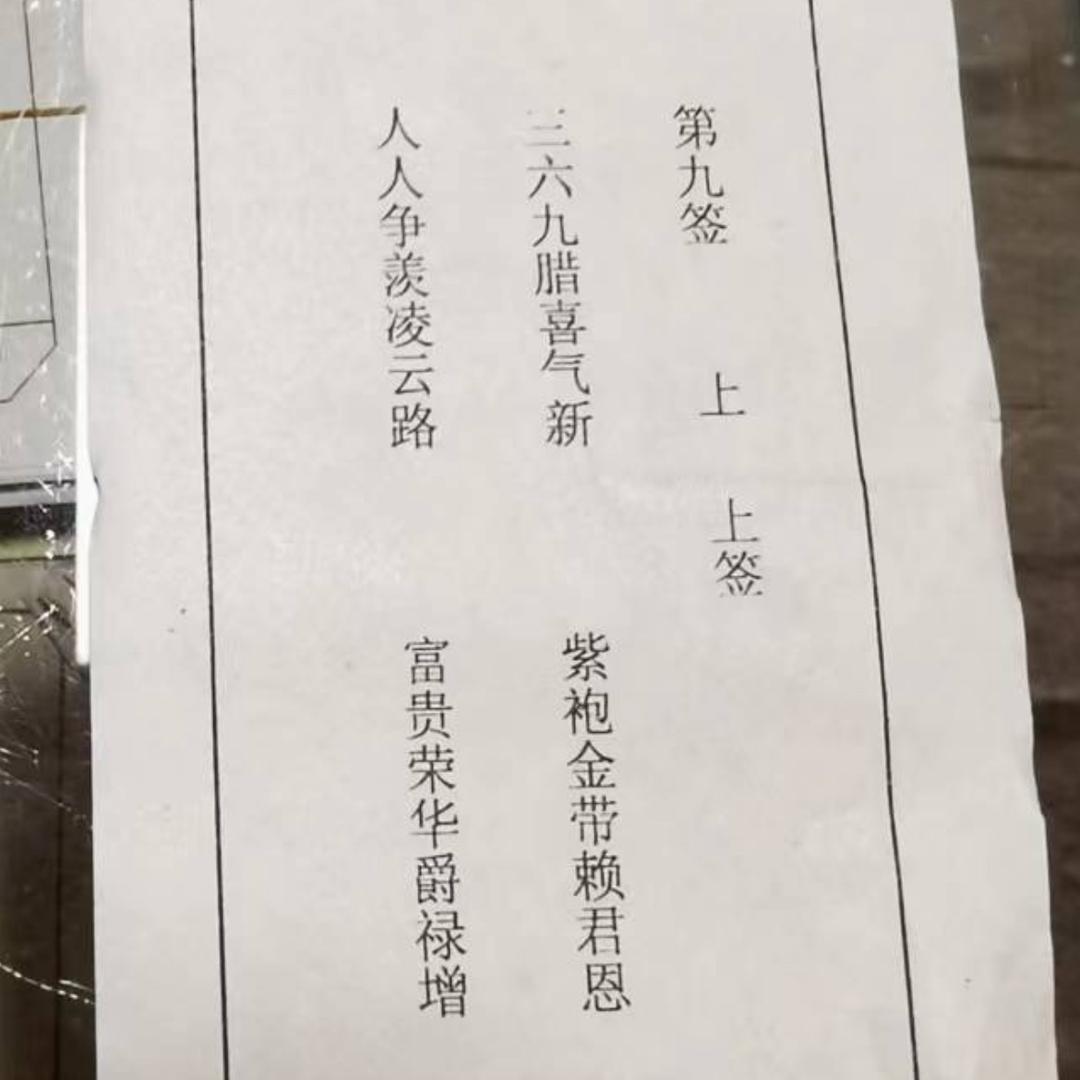 第九签 上 上签
三六九腊喜气新 紫袍金带赖君恩
人人争羡凌云路 富贵荣华爵禄增